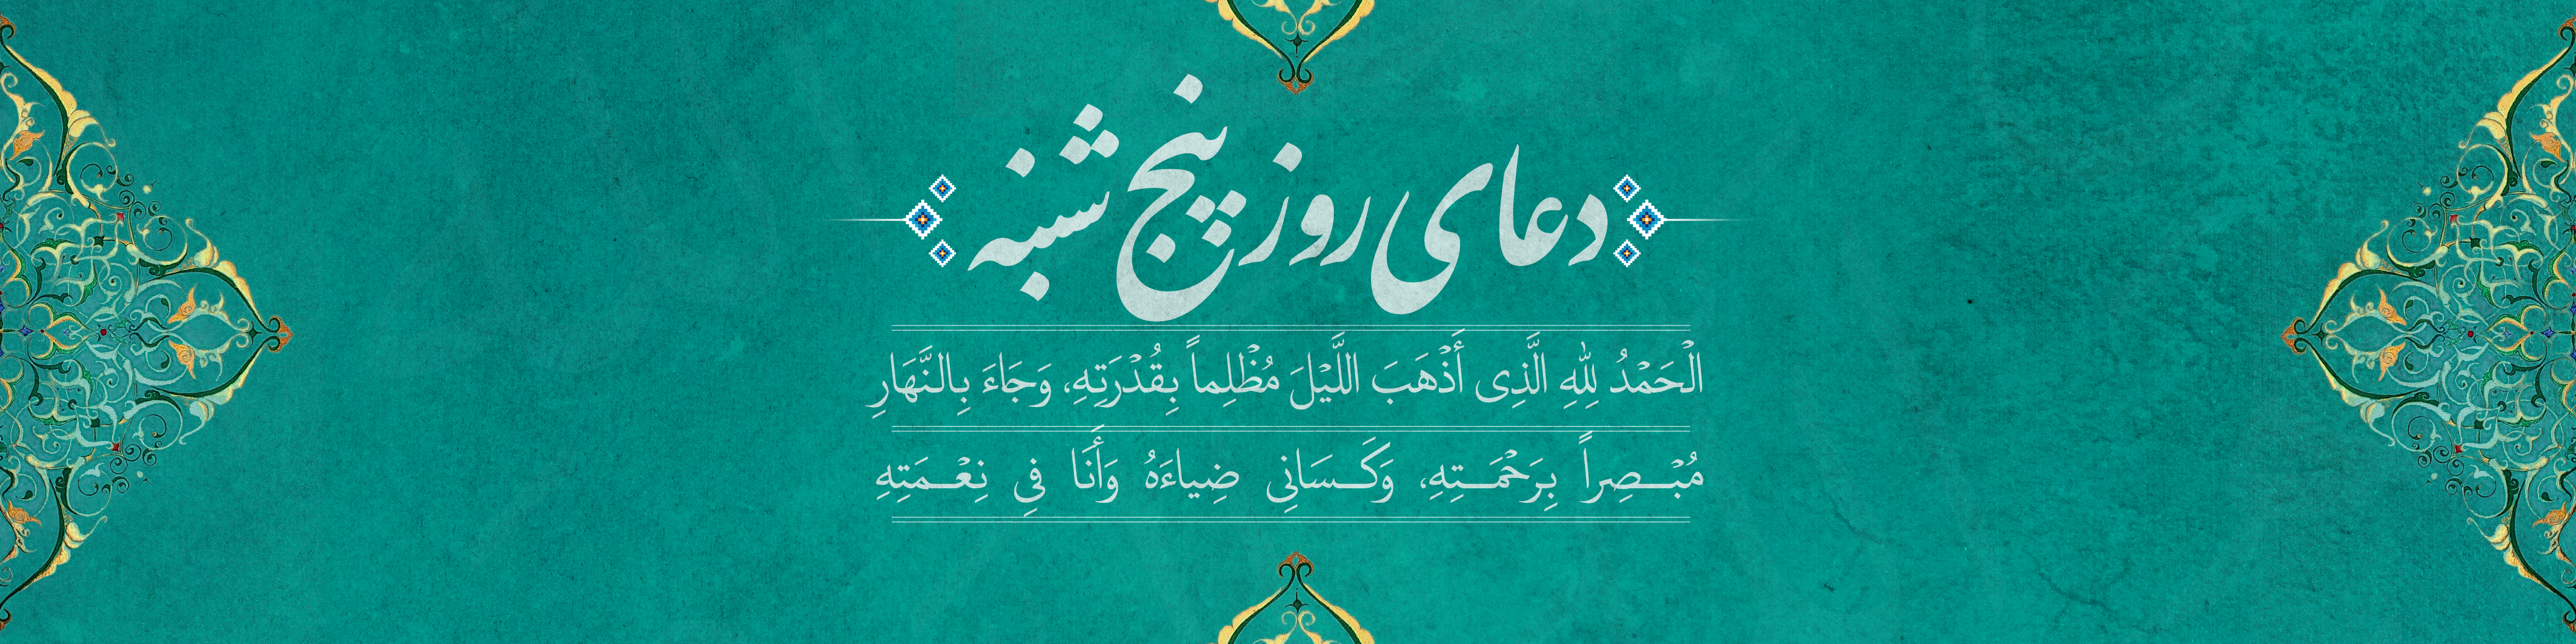 دعای روز پنج شنبه
الْحَمْدُ لِلّٰهِ الَّذِی أَذْهَبَ اللَّیْلَ مُظْلِماً بِقُدْرَتِهِ، وَجَاءَ بِالنَّهَارِ
مُبْصِراً بِرَحْمَتِهِ، وَكَسَانِی ضِیاءَهُ وَأَنَا فِی نِعْمَتِهِ